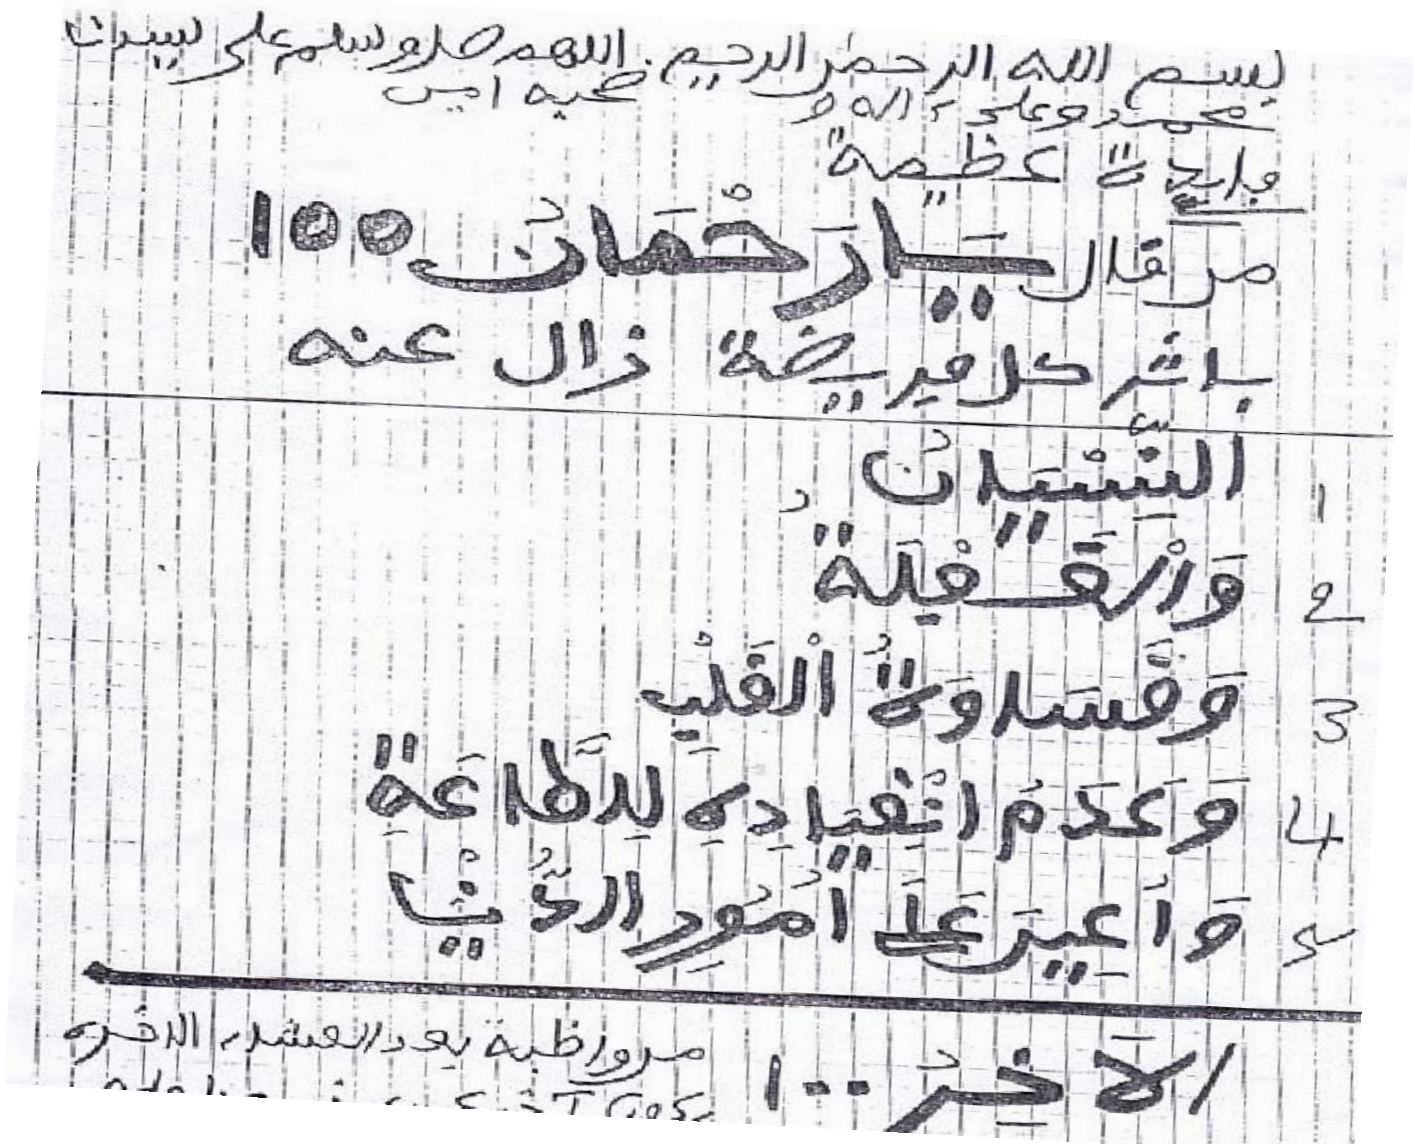 بسم الله الرحمن الرحيم. اللهم صل و سلم على سيدنا
محمد وعلى ءاله و صحبه امين
فايدة عظيمة
من قال يَارَحْمَانُ 100
باثر كل فريضة زال عنه
1 النِّسْيَانُ
2 وَالْغَفْلَةُ
3 وَقَسَاوَةُ الْقَلْبِ
4 وَعَدَمُ انْقِيَادِهِ لِلطَّاعَةِ
5 وَأُعِينَ عَلَى أُمُورِ الدُّنْيَا
الآخِرُ 100 من واظبه بعد العشاء الاخره